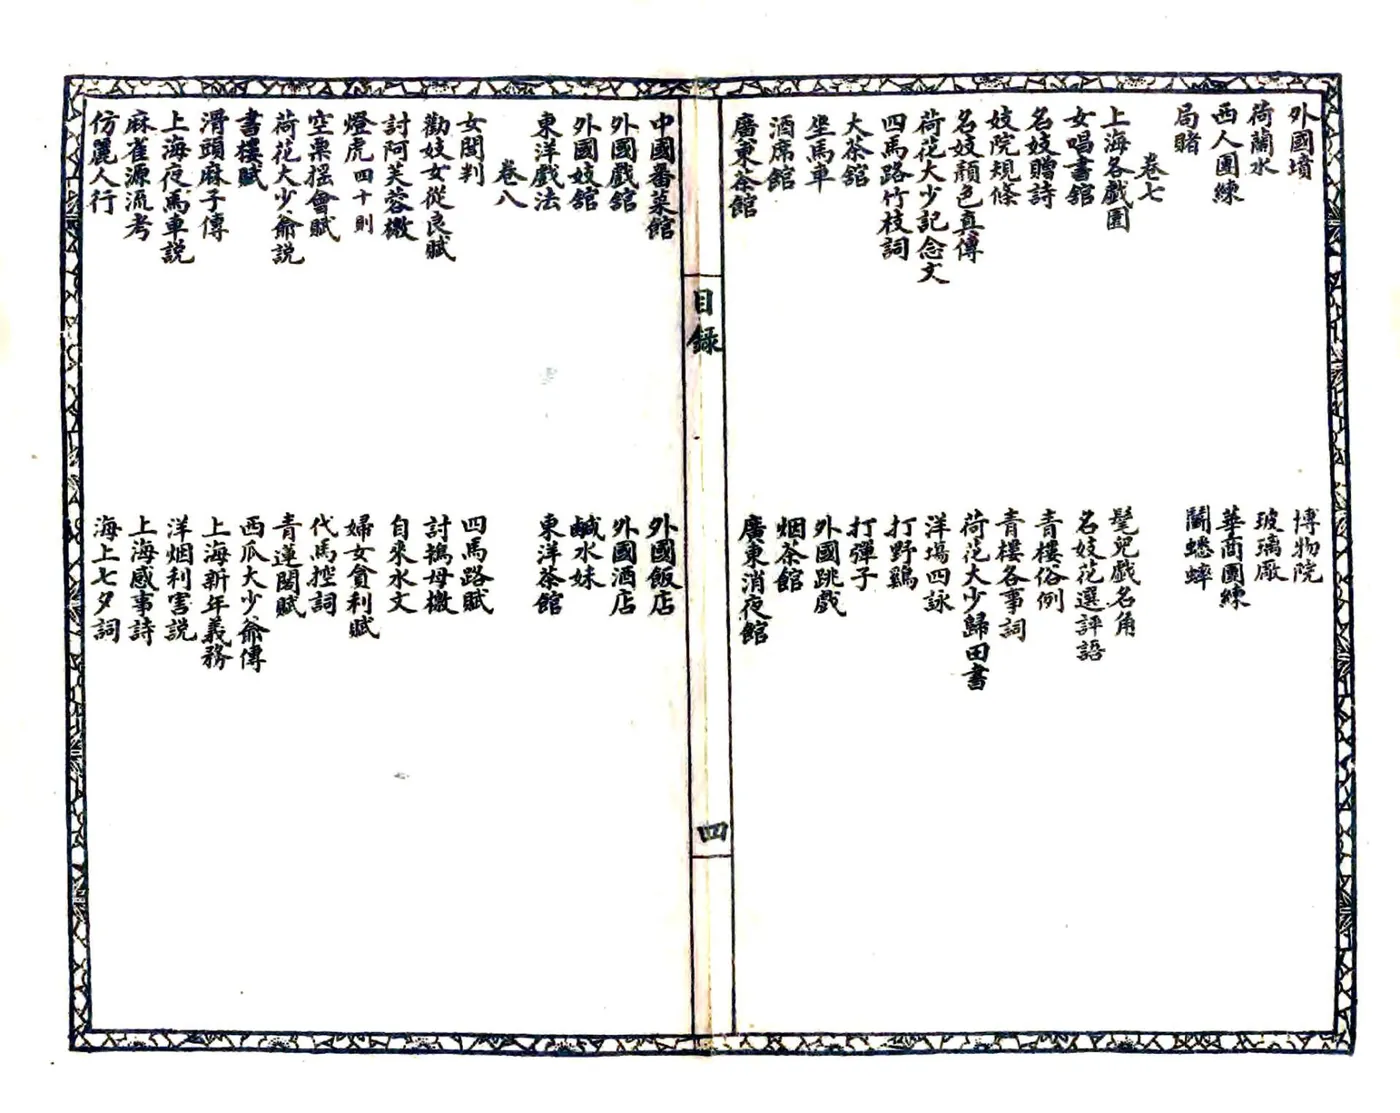 外國墳 博物院
荷蘭水 玻璃廠
西人團練 華商團練
局賭 鬭蟋蟀
卷七
上海各戲園 髦兒戲名角
女唱書舘 名妓花選評語
名妓贈詩 青樓俗例
妓院規條 青樓各事詞
名妓顏色真傳 荷花大少歸田書
荷花大少記念文 洋場四詠
四馬路竹枝詞 打野鷄
大茶舘 打彈子
坐馬車 外國跳戲
酒席館 烟茶館
廣東茶館 廣東消夜館
目錄
四
中國番菜館 外國飯店
外國戲舘 外國酒店
外國妓舘 鹹水妹
東洋戲法 東洋茶館
卷八
女閨判 四馬路賦
勸妓女從良賦 討鴇母檄
討阿芙蓉檄 自來水文
燈虎四十則 婦女貪利賦
空票搖會賦 代馬控詞
荷花大少爺説 青蓮閣賦
書樓賦 西瓜大少爺傳
滑頭麻子傳 上海新年義務
上海夜馬車説 洋烟利害説
麻雀源流考 上海感事詩
仿麗人行 海上七夕詞